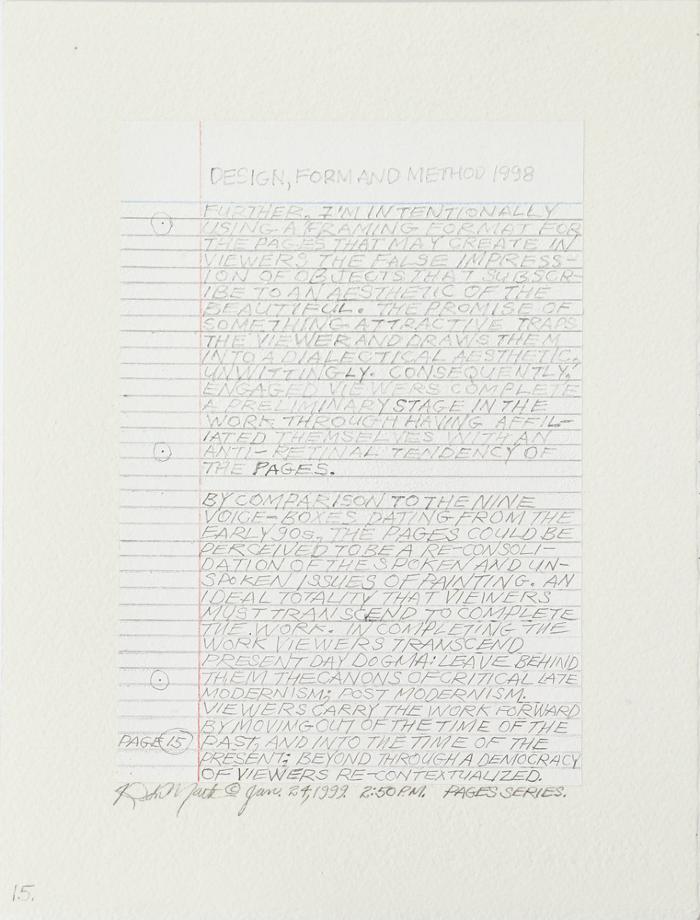 DESIGN, FORM AND METHOD 1998
FURTHER, I'M INTENTIONALLY
USING A FRAMING FORMAT FOR
THE PAGES THAT MAY CREATE IN
VIEWERS THE FALSE IMPRESS-
ION OF OBJECTS THAT SUBSCR-
IBE TO AN AESTHETIC OF THE
BEAUTIFUL. THE PROMISE OF
SOMETHING ATTRACTIVE TRAPS
THE VIEWER AND DRAWS THEM
INTO A DIALECTICAL AESTHETIC,
UNWITTINGLY. CONSEQUENTLY,
ENGAGED VIEWERS COMPLETE
A PRELIMINARY STAGE IN THE
WORK THROUGH HAVING AFFIL-
IATED THEMSELVES WITH AN
ANTI-RETINAL TENDENCY OF
THE PAGES.
BY COMPARISON TO THE NINE
VOICE-BOXES DATING FROM THE
EARLY 90s, THE PAGES COULD BE
PERCEIVED TO BE A RE-CONSOLI-
DATION OF THE SPOKEN AND UN-
SPOKEN ISSUES OF PAINTING. AN
IDEAL TOTALITY THAT VIEWERS
MUST TRANSCEND TO COMPLETE
THE WORK. IN COMPLETING THE
WORK VIEWERS TRANSCEND
PRESENT DAY DOGMA: LEAVE BEHIND
THEM THE CANONS OF CRITICAL LATE
MODERNISM; POST MODERNISM.
VIEWERS CARRY THE WORK FORWARD
BY MOVING OUT OF THE TIME OF THE
PAGE 15 PAST, AND INTO THE TIME OF THE
PRESENT: BEYOND THROUGH A DEMOCRACY
OF VIEWERS RE-CONTEXTUALIZED.
© Jan. 24, 1999. 2:50 PM. PAGES SERIES.
15.